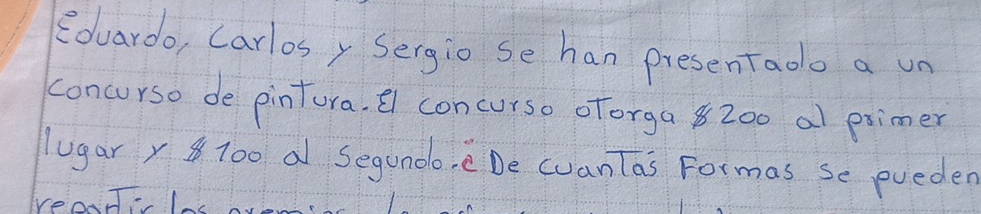 Eduardo, Carlos y Sergio se han presentado a un
concurso de pintura. El concurso otorga $200 al primer
lugar y $100 al segundo. ¿De cuantas Formas se pueden
repartir los